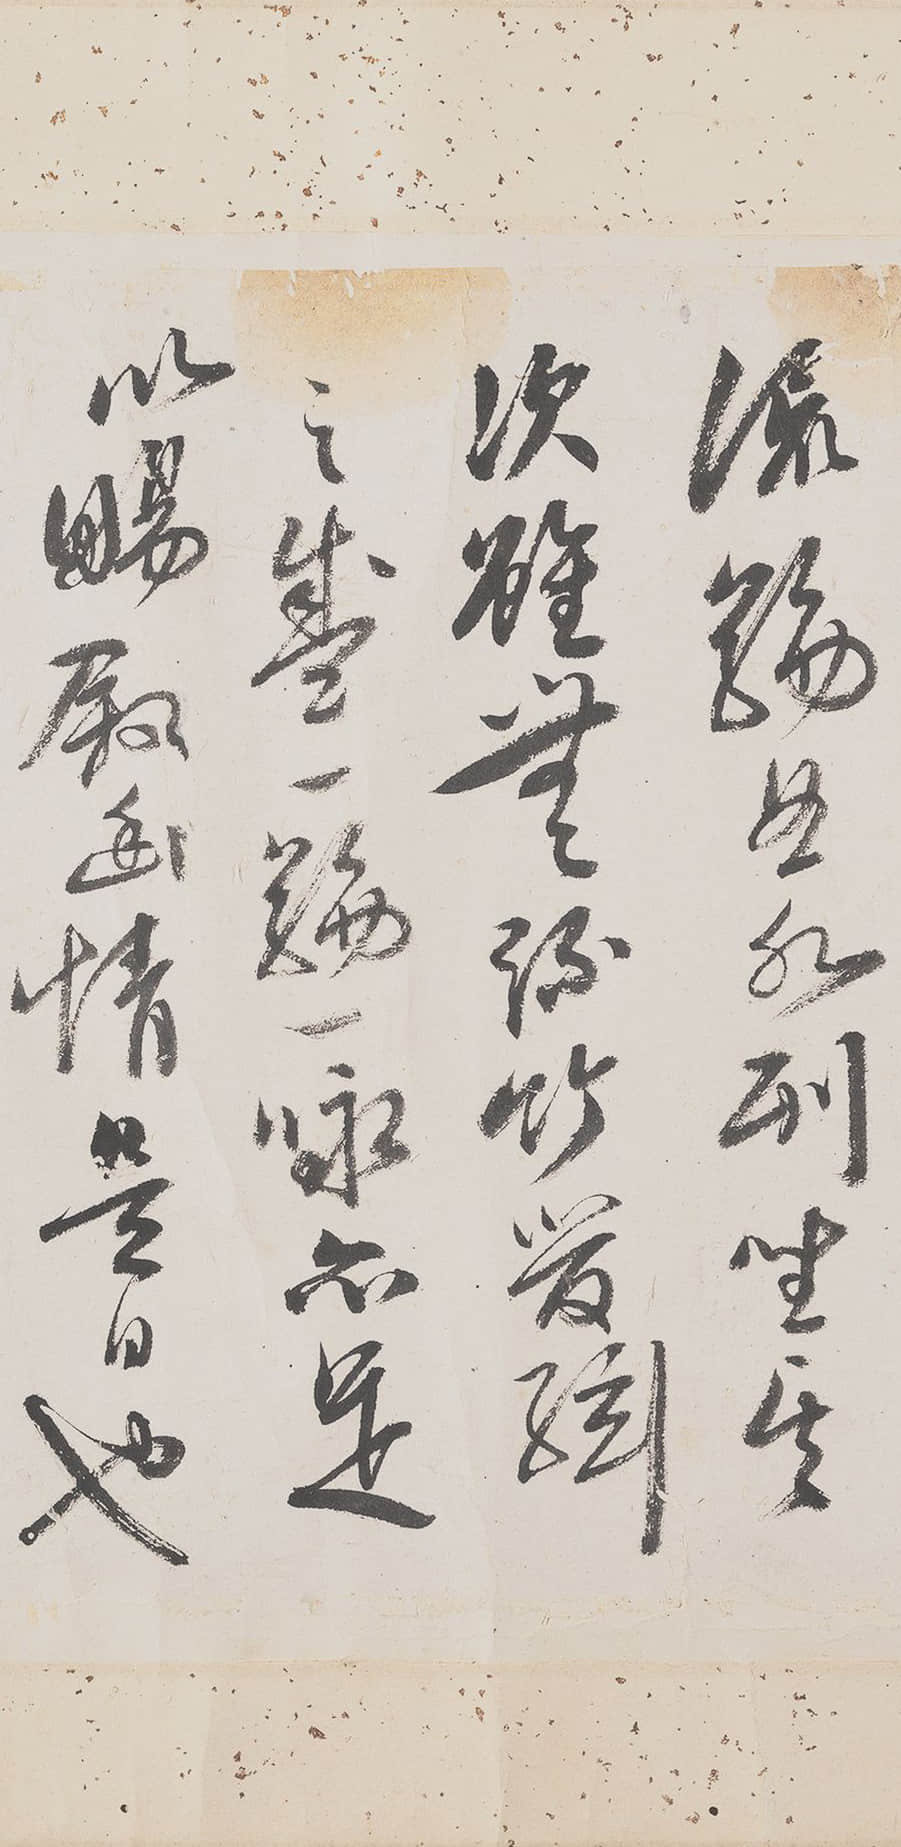 流觴曲水列坐其
次雖無絲竹管絃
之盛一觴一詠亦足
以暢敘幽情是日也